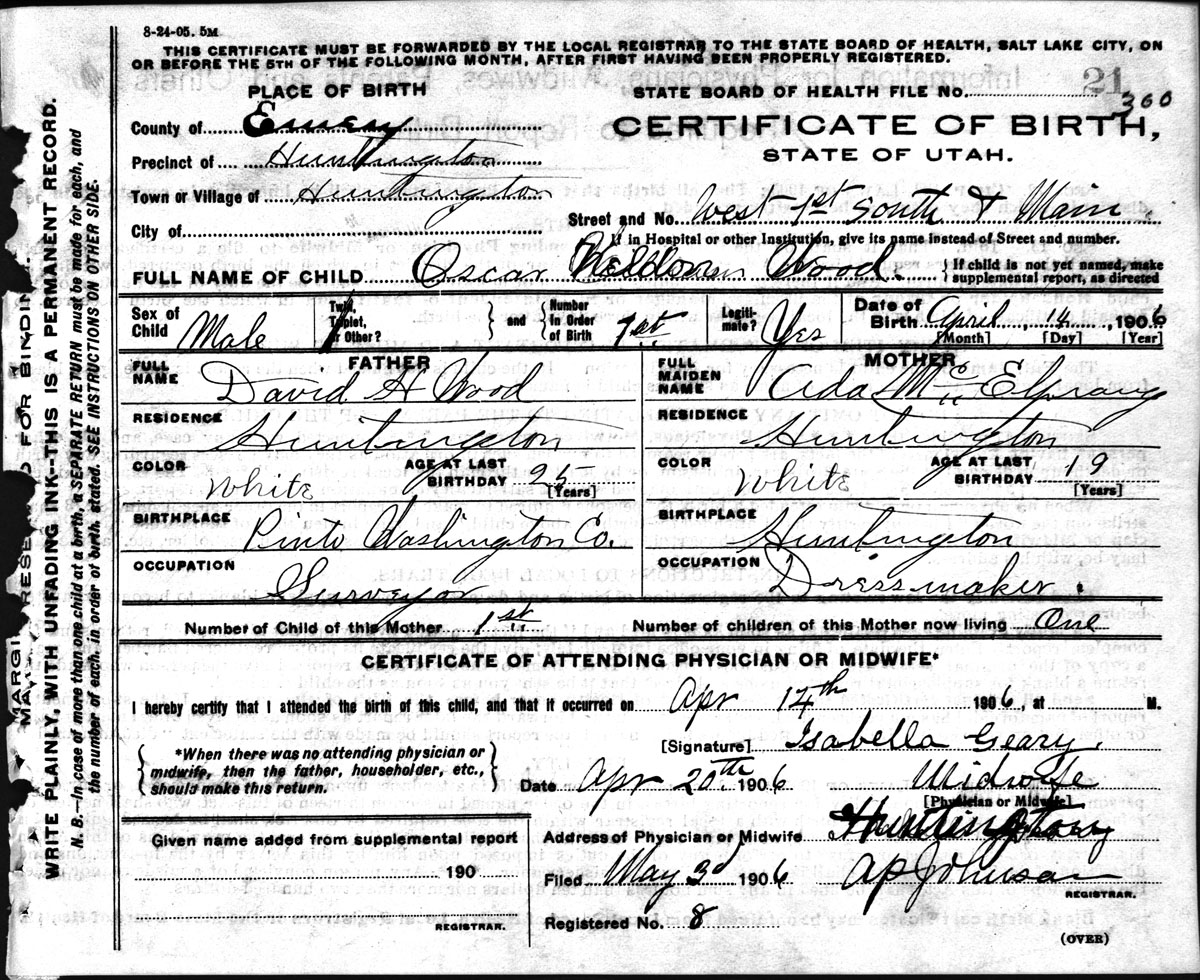 8-24-05. 5M
THIS CERTIFICATE MUST BE FORWARDED BY THE LOCAL REGISTRAR TO THE STATE BOARD OF HEALTH, SALT LAKE CITY, ON
OR BEFORE THE 5TH OF THE FOLLOWING MONTH, AFTER FIRST HAVING BEEN PROPERLY REGISTERED.
PLACE OF BIRTH
STATE BOARD OF HEALTH FILE No. 21
360
County of Emery
CERTIFICATE OF BIRTH,
STATE OF UTAH.
Precinct of Huntington
Town or Village of Huntington
Street and No. West 1st South & Main
City of
If in Hospital or other Institution, give its name instead of Street and number.
FULL NAME OF CHILD Oscar Wood. { If child is not yet named, make
supplemental report, as directed
Sex of Child Male
Twin, Triplet, or Other?
and
Number In Order of Birth 1st
Legitimate? Yes
Date of Birth April 14, 1906
[Month] [Day] [Year]
FATHER
FULL NAME David H Wood
RESIDENCE Huntington
COLOR White
AGE AT LAST BIRTHDAY 25
[Years]
BIRTHPLACE Pinto Washington Co.
OCCUPATION Surveyor
MOTHER
FULL MAIDEN NAME McElprang
RESIDENCE Huntington
COLOR White
AGE AT LAST BIRTHDAY 19
[Years]
BIRTHPLACE Huntington
OCCUPATION Dressmaker.
Number of Child of this Mother 1st
Number of children of this Mother now living One
CERTIFICATE OF ATTENDING PHYSICIAN OR MIDWIFE*
I hereby certify that I attended the birth of this child, and that it occurred on Apr 14th 1906, at M.
*When there was no attending physician or
midwife, then the father, householder, etc.,
should make this return.
[Signature] Isabella Geary.
Date Apr 20th. 1906 Midwife
[Physician or Midwife]
Given name added from supplemental report
190
REGISTRAR.
Address of Physician or Midwife Huntington
Filed May 3d 1906 AP Johnson
REGISTRAR.
Registered No. 8
(OVER)
MARGIN RESERVED FOR BINDING.
WRITE PLAINLY, WITH UNFADING INK--THIS IS A PERMANENT RECORD.
N. B.--In case of more than one child at a birth, a SEPARATE RETURN must be made for each, and
the number of each, in order of birth, stated. SEE INSTRUCTIONS ON OTHER SIDE.